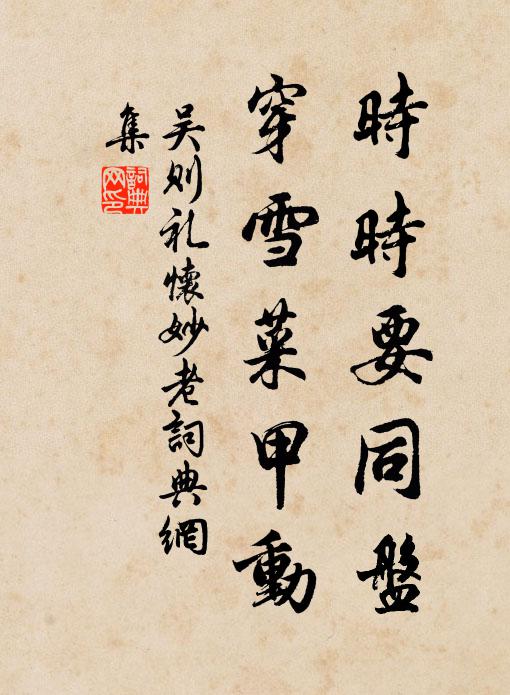 時時要同盤
穿雪菜甲動
吴则礼懷妙老詞典網
集
詞典网印